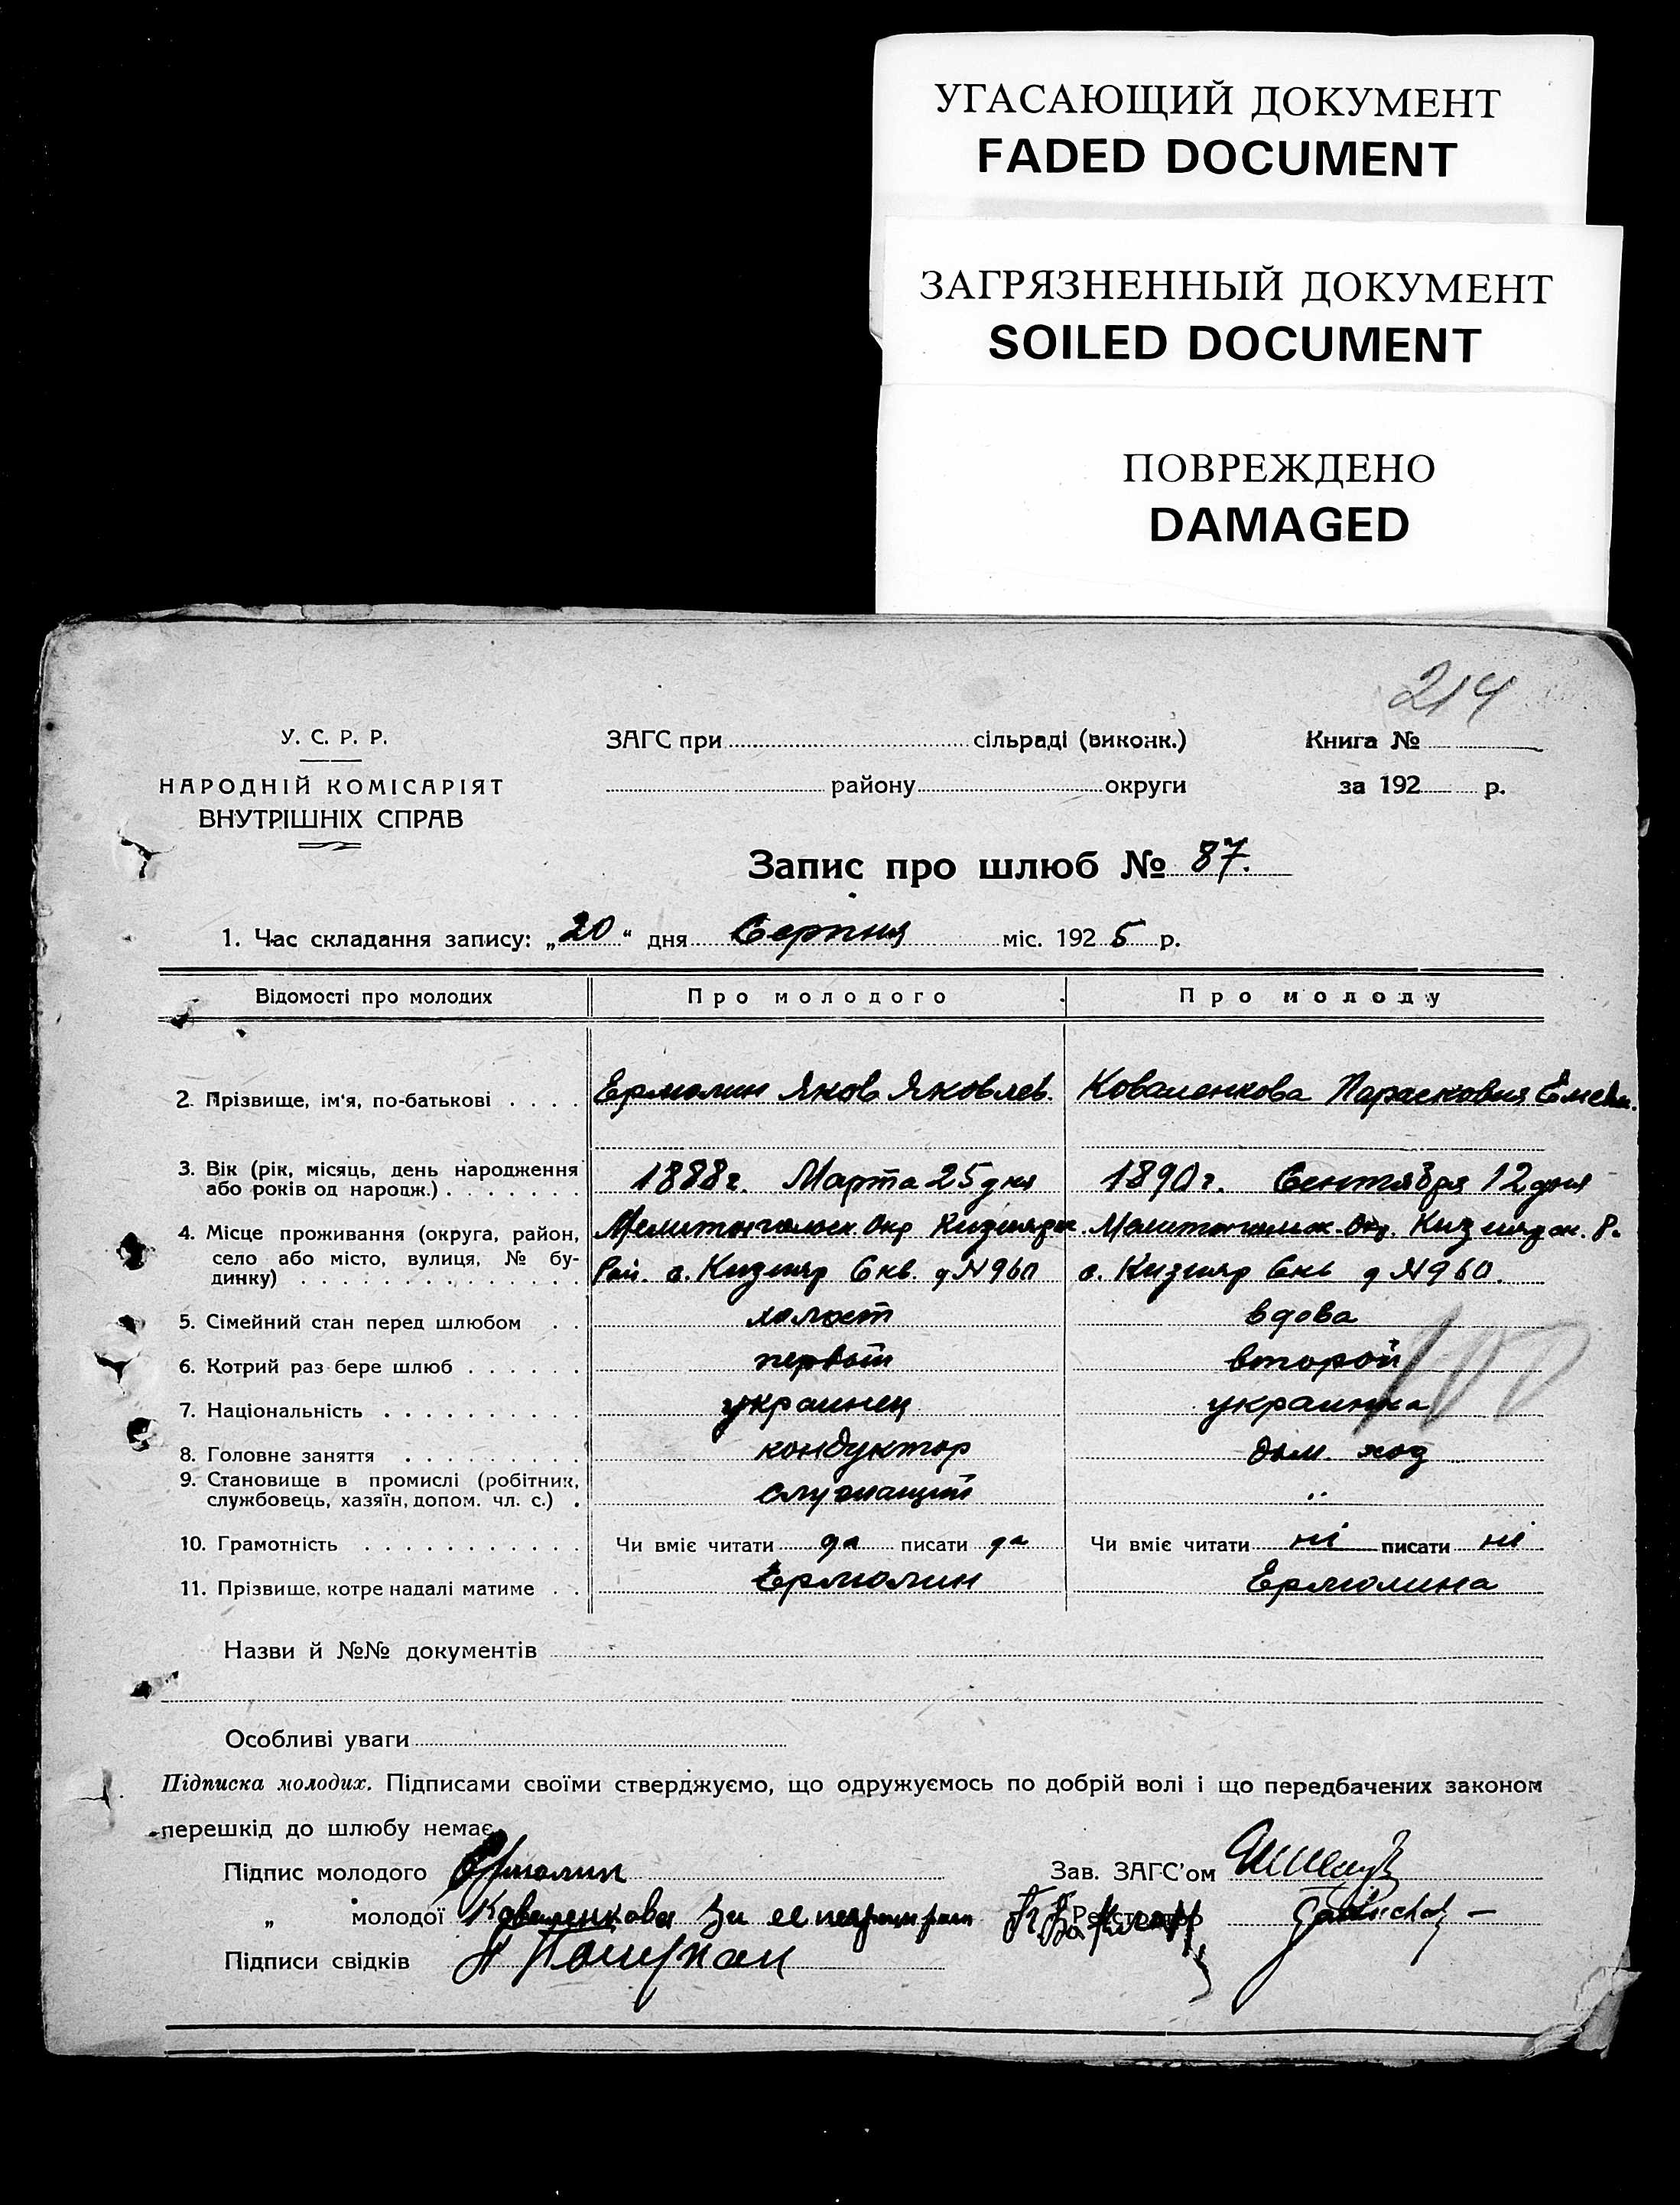 УГАСАЮЩИЙ ДОКУМЕНТ
FADED DOCUMENT
ЗАГРЯЗНЕННЫЙ ДОКУМЕНТ
SOILED DOCUMENT
ПОВРЕЖДЕНО
DAMAGED
214
У. С. Р. Р.
НАРОДНІЙ КОМІСАРІЯТ
ВНУТРІШНІХ СПРАВ
ЗАГС при сільраді (виконк.)
району округи
Книга №
за 192 р.
Запис про шлюб № 87.
1. Час складання запису: „20“ дня Серпня міс. 1925 р.
Відомості про молодих Про молодого Про молоду
2. Прізвище, ім'я, по-батькові . . . . Ермолин Яков Яковлев. Коваленкова Парасковия
3. Вік (рік, місяць, день народження
або років од народж.) . . . . . . . 1888г. Марта 25 дня 1890г. Сентября 12 дня
4. Місце проживання (округа, район,
село або місто, вулиця, № бу-
динку) . . . . . . . . . . . . . .
Рай. с. Кизияр 6 кв. д №960 с. Кизияр 6 кв д №960.
5. Сімейний стан перед шлюбом . . холост вдова
6. Котрий раз бере шлюб . . . . . . первый второй
100
7. Національність . . . . . . . . . . украинец украинка
8. Головне заняття . . . . . . . . . кондуктор дом. хоз
9. Становище в промислі (робітник,
службовець, хазяїн, допом. чл. с.) . служащий "
10. Грамотність . . . . . . . . . . . Чи вміє читати да писати да Чи вміє читати ні писати ні
11. Прізвище, котре надалі матиме . . Ермолин Ермолина
Назви й №№ документів
Особливі уваги
Підписка молодих. Підписами своїми стверджуємо, що одружуємось по добрій волі і що передбачених законом
перешкід до шлюбу немає.
Підпис молодого Ермолин Зав. ЗАГС'ом
„ молодої Коваленкова За ее неграмотн Реєстратор
Підписи свідків